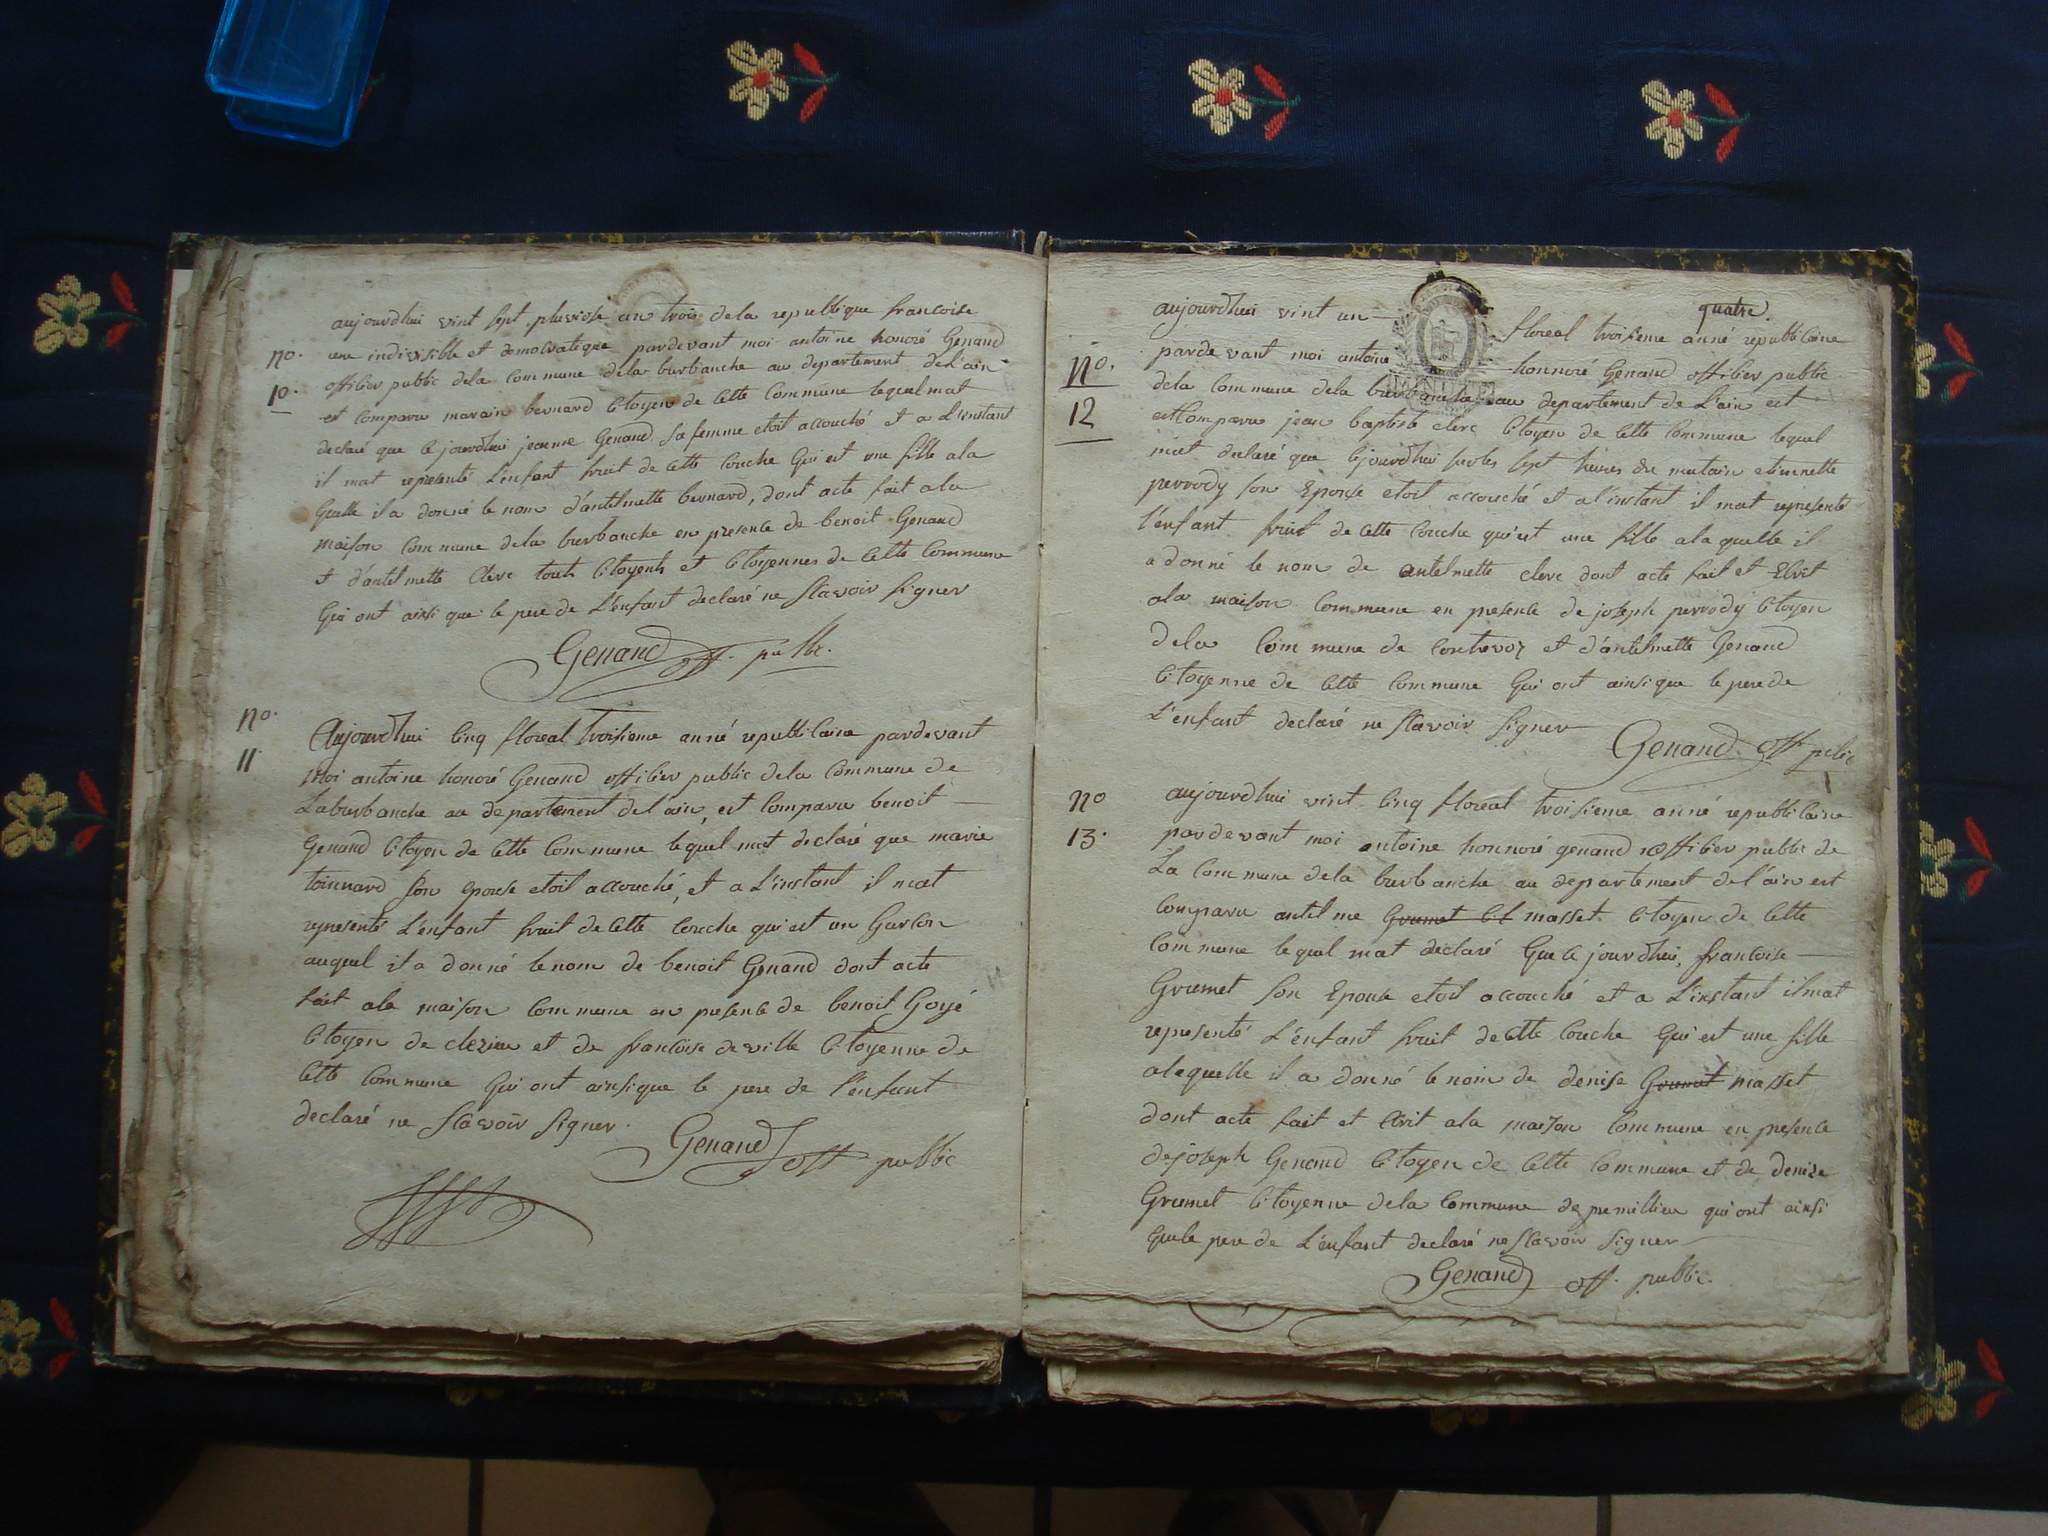 aujourdhui vint sept pluviose an trois dela republique francoise
no. une indivisible et democratique pardevant moi antoine honoré Genand
10. officier public dela commune dela burbanche au departement delain
est comparu marain bernard citoyen de cette commune lequel mat
declaré que ce jourdhui jeanne Genand sa femme etoit accouché et a L'instant
il mat representé L'enfant fruit de cette couche qui est une fille ala
quelle il a donné le nom d'antelmette bernard, dont acte fait ala
maison commune dela burbanche en presence de benoit Genand
et d'antelmette Clerc touts citoyents et citoyennes de cette commune
qui ont ainsi que le pere de L'enfant declaré ne scavoir signer
Genand off. public.
no. Aujourdhui cinq floreal troisieme anné republicaine pardevant
11 moi antoine honoré Genand officier public dela commune de
Laburbanche au departement delain, est comparu benoit
Genand citoyen de cette commune lequel mat declaré que marie
toinnard son epouse etoit accouché, et a L'instant il mat
representé L'enfant fruit de cette couche qui est un Garson
auquel il a donné le nom de benoit Genand dont acte
fait ala maison commune en presence de benoit Goyé
citoyen de clezieu et de francoise deville citoyenne de
cette commune qui ont ainsi que le pere de l'enfant
declaré ne scavoir signer.
Genand off public
quatre.
aujourdhui vint un floreal troisieme anné republicaine
no. pardevant moi antoine honnoré Genand officier public
12 dela commune dela burbanche au departement de L'ain est
est comparu jean baptiste clerc citoyen de cette commune lequel
mat declaré que cejourdhui sur les sept heures du matain etiennette
perrody son Epouse etoit accouché et a l'instant il mat representé
l'enfant fruit de cette couche qu'est une fille ala quelle il
a donné le nom de antelmette clerc dont acte fait et Ecrit
ala maison commune en presence de joseph perrody citoyen
dela commune de contrevoz et d'antelmette Genand
citoyenne de cette commune qui ont ainsi que le pere de
L'enfant declaré ne scavoir signer
Genand off pclic
no aujourdhui vint cinq floreal troisieme anné republicaine
13. pardevant moi antoine honnoré genand officier public de
La commune dela burbanche au departement de l'ain est
comparu antelme Grumet cit masset citoyen de cette
commune lequel mat declaré que ce jourdhui, francoise
Grumet son Epouse etoit accouché et a L'instant il mat
representé L'enfant fruit de cette couche qui est une fille
alaquelle il a donné le nom de denise Grumet masset
dont acte fait et ecrit ala maison commune en presence
de joseph Genand citoyen de cette commune et de denise
Grumet citoyenne dela commune de premillieu qui ont ainsi
que le pere de L'enfant declaré ne scavoir signer
Genand off. public.